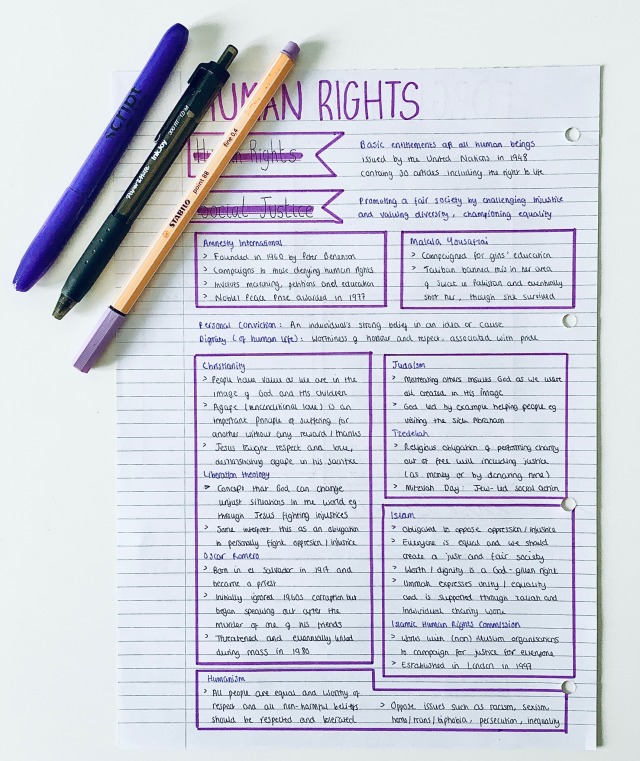 script
PAPER:MATE InkJoy 300 RT 1.0 M
STABILO point 88 fine 0.4
HUMAN RIGHTS
Human Rights
Basic entitlements of all human beings
issued by the United Nations in 1948
containg 30 articles including the right to life
Social Justice
Promoting a fair society by challenging injustice
and valuing diversity, championing equality
Amnesty International
> Founded in 1960 by Peter Benenson
> Campaigns to those denying human rights
> Involves marching, petitions and education
> Nobel Peace Prize awarded in 1977
Malala Yousafzai
> Campaigned for girls' education
> Taliban banned this in her area
of Swat in Pakistan and eventually
shot her, though she survived
Personal Conviction: An individual's strong belief in an idea or cause
Dignity (of human life): Worthiness of honour and respect, associated with pride
Christianity
> People have value as we are in the
image of God and His children
> Agape (unconditional love) is an
important principle of suffering for
another without any reward/thanks
> Jesus taught respect and love,
demonstrating agape in his sacrifice
Liberation theology
> Concept that God can change
unjust situations in the world eg
through Jesus fighting injustices
> Some interpret this as an obligation
to personally fight oppression/injustice
Oscar Romero
> Born in el Salvador in 1917 and
became a priest
> Initially ignored 1960s corruption but
began speaking out after the
murder of one of his friends
> Threatened and eventually killed
during mass in 1980
Judaism
> Mistreating others insults God as we were
all created in His image
> God led by example helping people eg
visiting the sick Abraham
Tzedekah
> Religious obligation of performing charity
out of free will including justice
(as money or by donating time)
> Mitzvah Day: Jew-led social action
Islam
> Obligated to oppose oppression/injustice
> Everyone is equal and we should
create a just and fair society
> Worth/dignity is a God-given right
> Ummah expresses unity/equality
and is supported through zakah and
individual charity work
Islamic Human Rights Commission
> Works with (non) Muslim organisations
to campaign for justice for everyone
> Established in London in 1997
Humanism
> All people are equal and worthy of
respect and all non-harmful beliefs
should be respected and tolerated
> Oppose issues such as racism, sexism,
homo/trans/biphobia, persecution, inequality